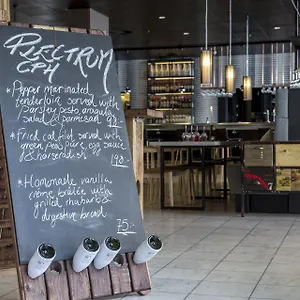 PLECTRUM
CPH
*Pepper marinated
tenderloin served with
parsley pesto, arugula
salad & parmesan 92
*Fried catfish served with
green peas purè, egg sauce
& horseradish 198.-
*Hommade vanilla
creme brûlée with
grilled rhubarb &
digestive bread
75.-